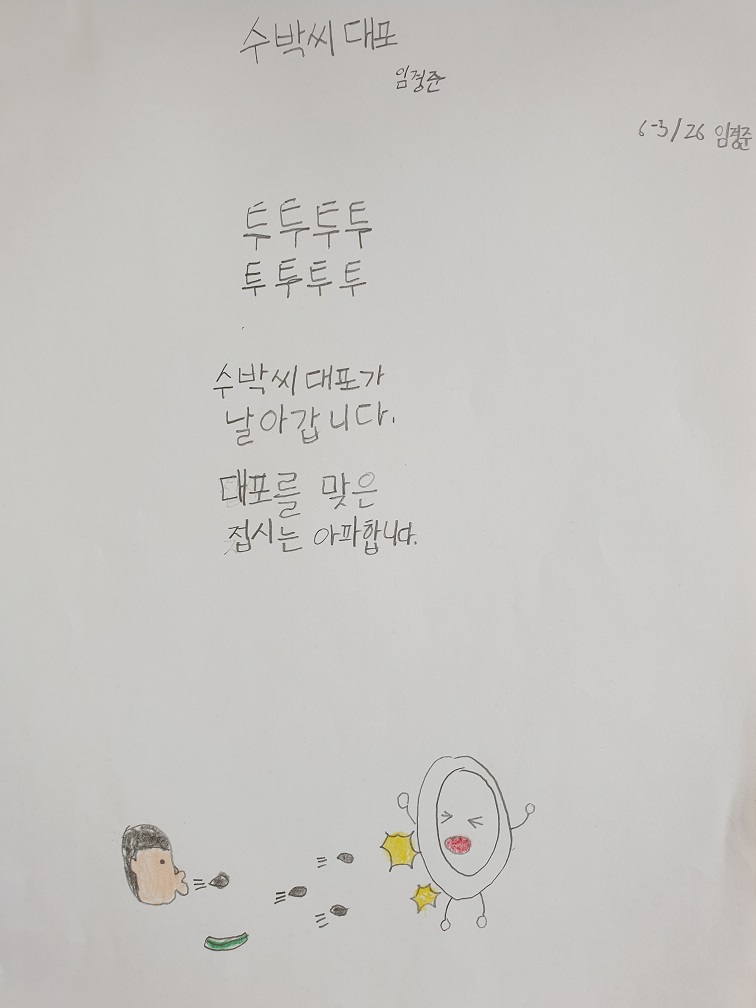 수박씨 대포
임경준
6-3/26 임경준
투투투투
투투투투
수박씨 대포가
날아갑니다.
대포를 맞은
접시는 아파합니다.